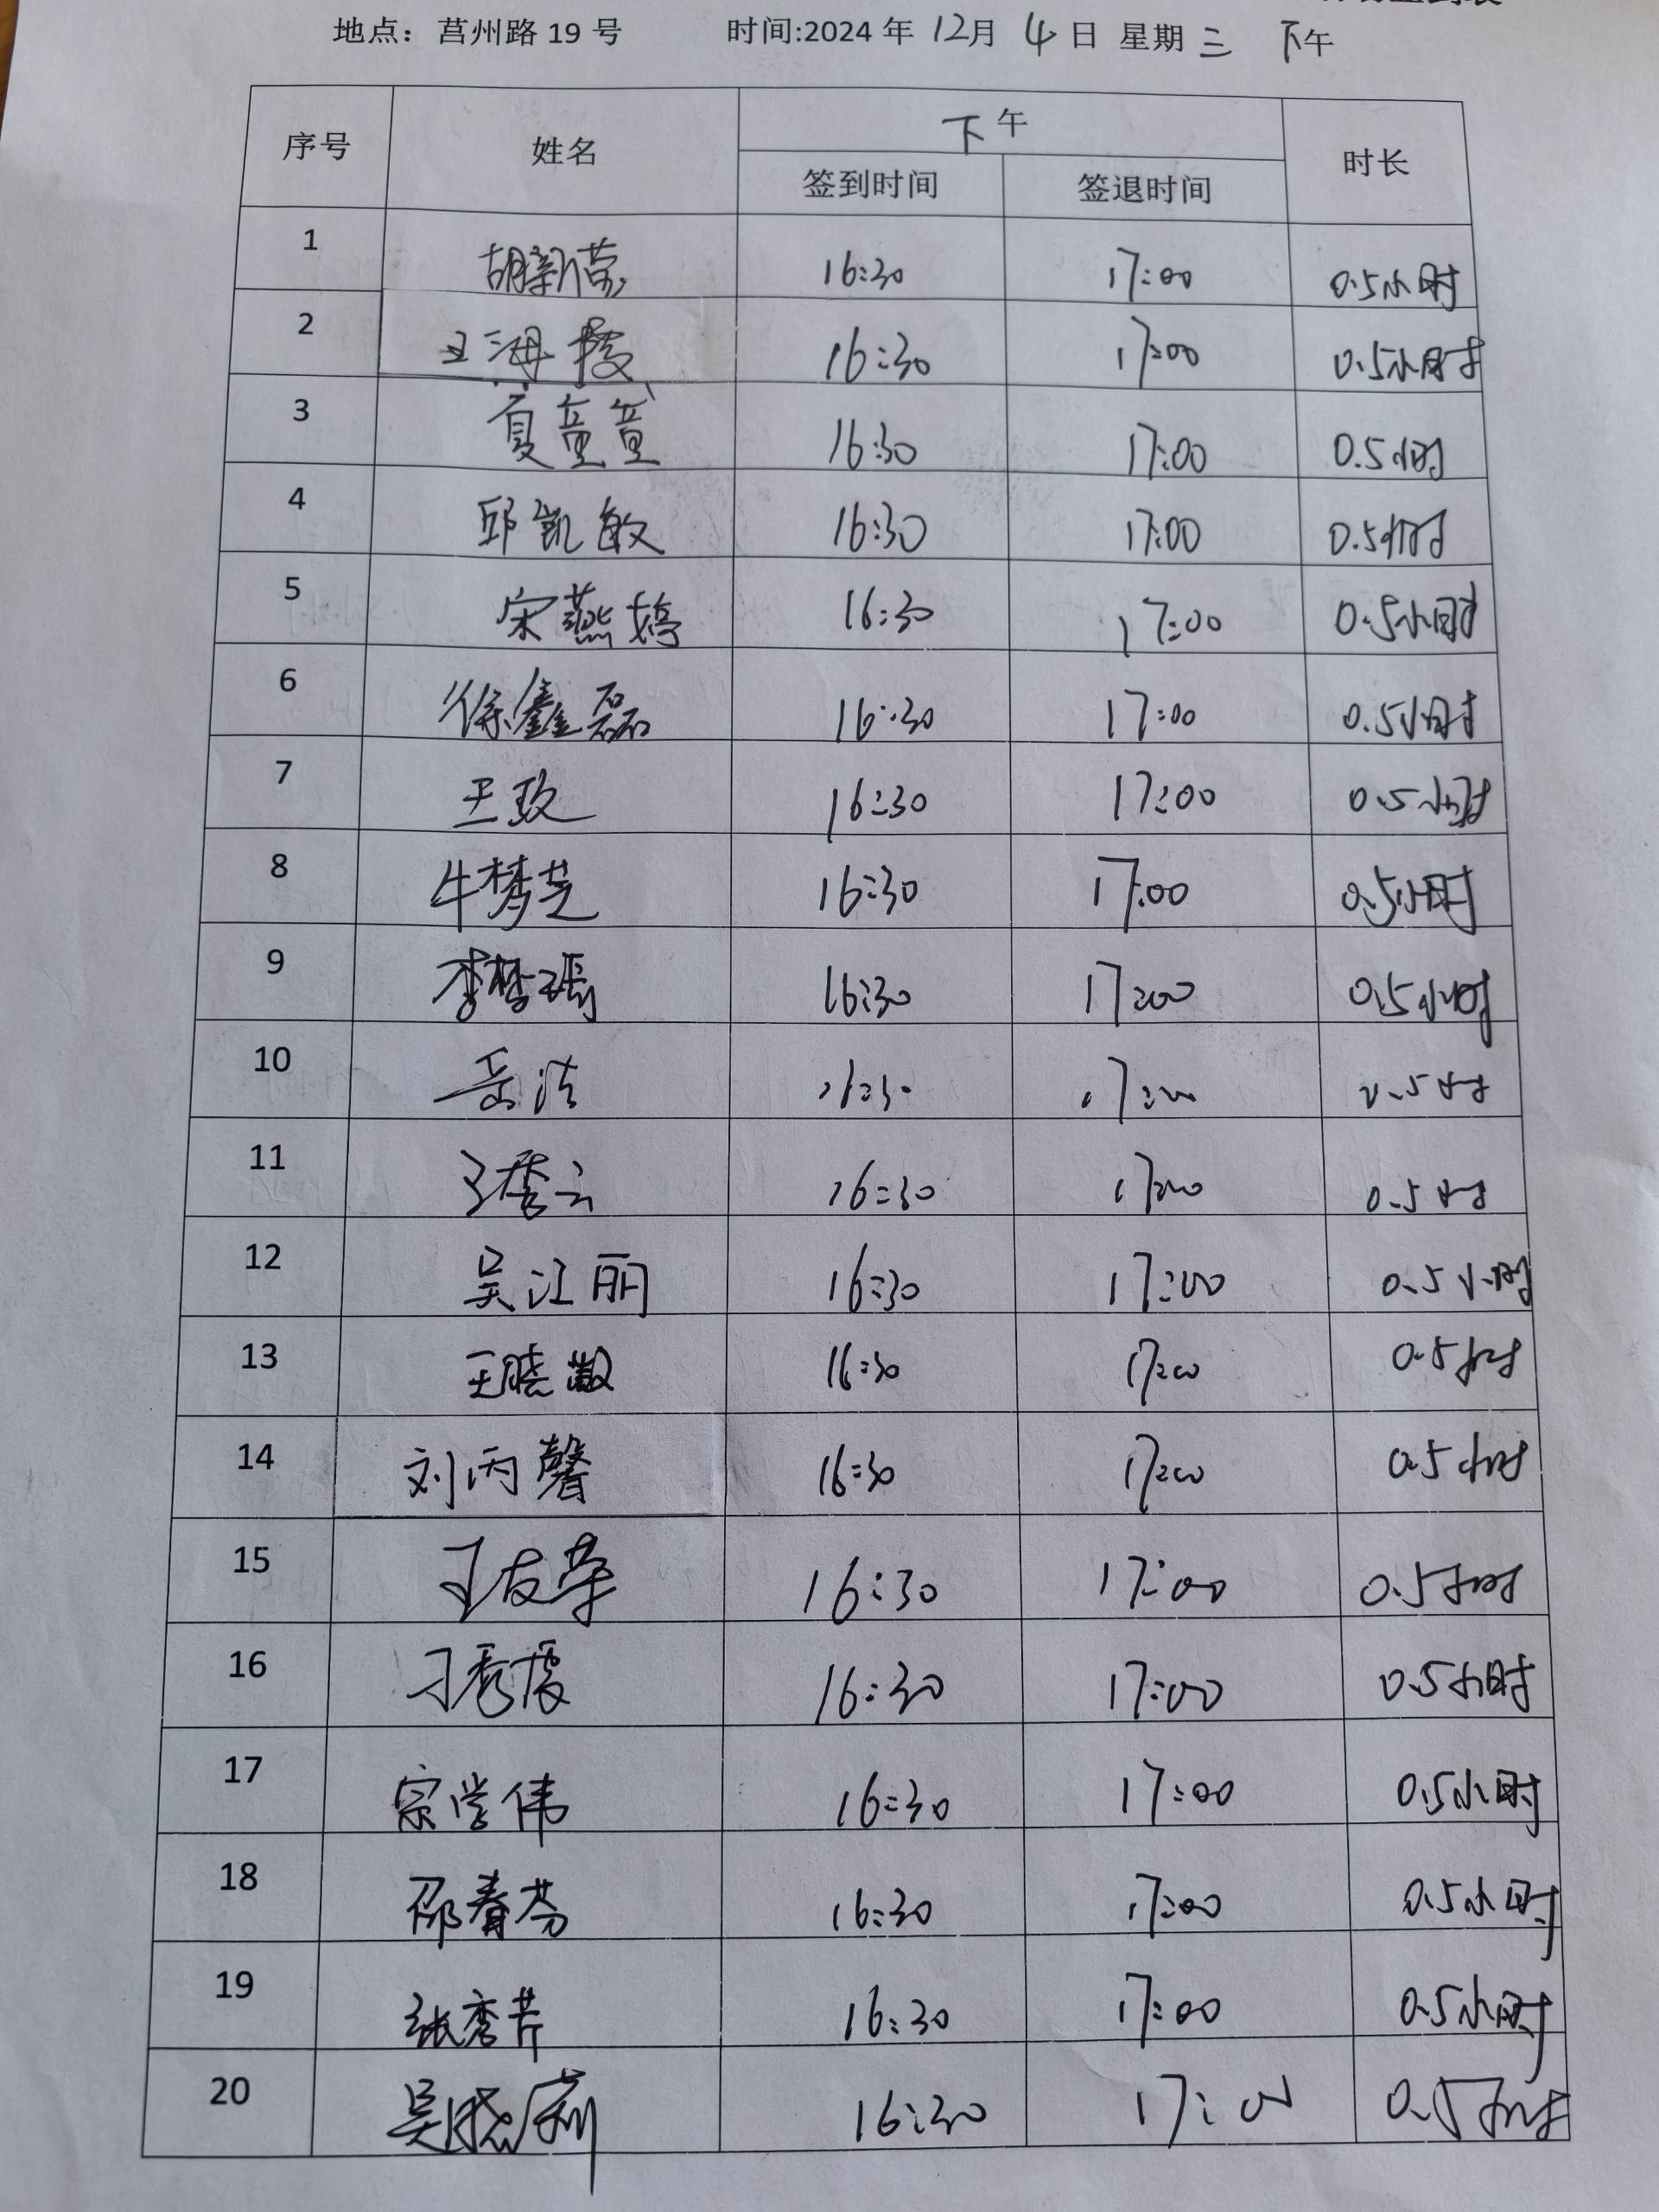 地点：莒州路 19 号 时间:2024 年 12月 4 日 星期三 下午
序号 姓名 下午 时长
签到时间 签退时间
1 胡新荣 16:30 17:00 0.5小时
2 王海 16:30 17:00 0.5小时
3 夏童童 16:30 17:00 0.5小时
4 邱凯敏 16:30 17:00 0.5小时
5 宋燕婷 16:30 17:00 0.5小时
6 徐鑫磊 16:30 17:00 0.5小时
7 王玫 16:30 17:00 0.5小时
8 牛梦芝 16:30 17:00 0.5小时
9 李梦瑶 16:30 17:00 0.5小时
10 岳洁 16:30 17:00 0.5小时
11 王秀云 16:30 17:00 0.5小时
12 吴江丽 16:30 17:00 0.5小时
13 王晓 16:30 17:00 0.5小时
14 刘丙馨 16:30 17:00 0.5小时
15 王友荣 16:30 17:00 0.5小时
16 刁秀霞 16:30 17:00 0.5小时
17 宗学伟 16:30 17:00 0.5小时
18 邵春芬 16:30 17:00 0.5小时
19 张秀芹 16:30 17:00 0.5小时
20 吴晓莉 16:30 17:00 0.5小时